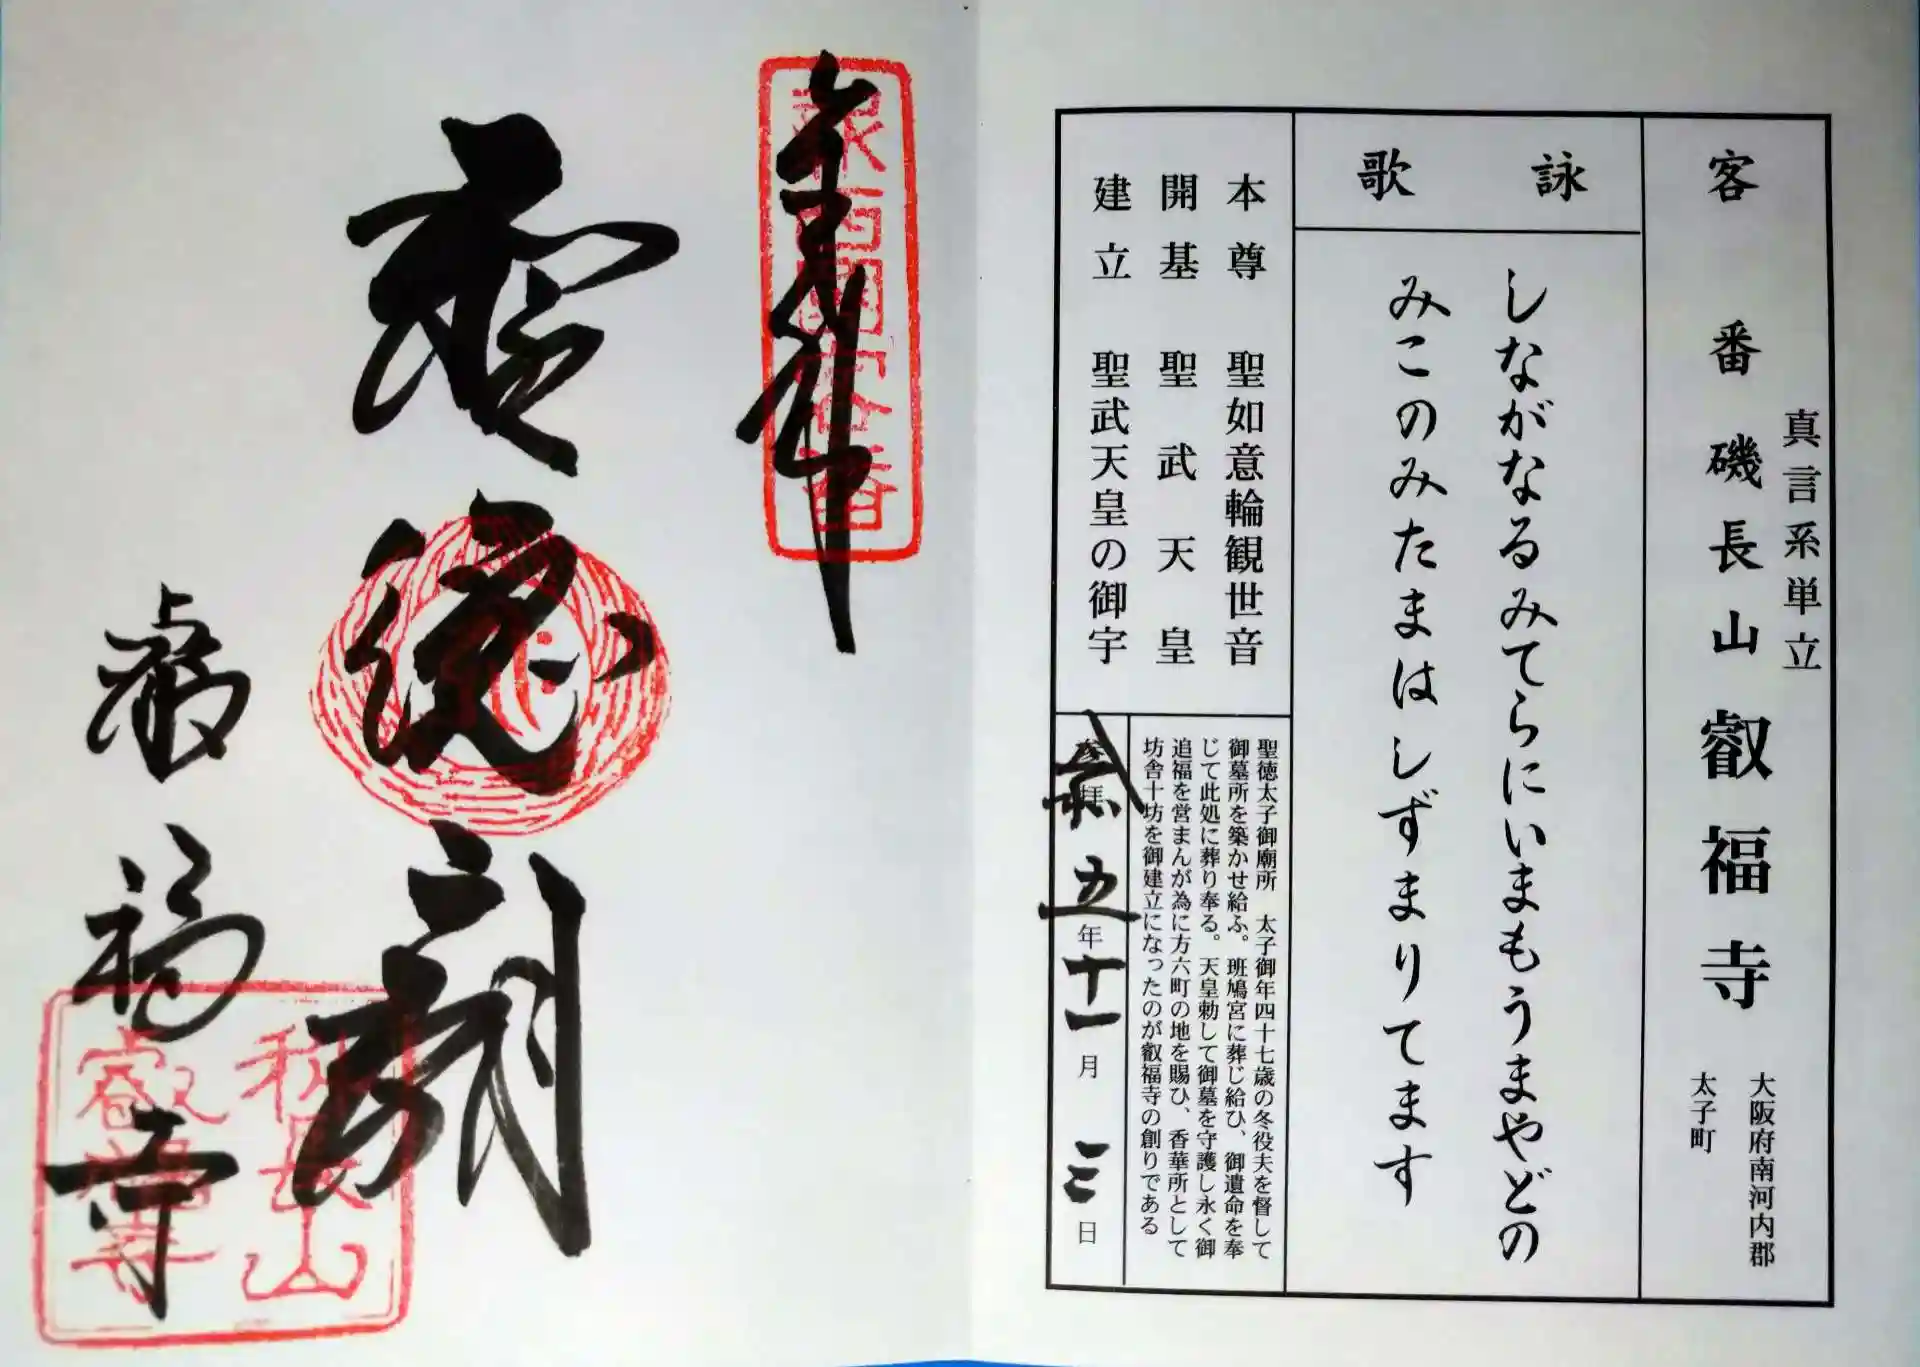 真言系単立
客番 磯長山 叡福寺
大阪府南河内郡
太子町
詠歌
しながなるみてらにいまもうまやどの
みこのみたまはしずまりてます
本尊 聖如意輪観世音
開基 聖武天皇
建立 聖武天皇の御宇
聖徳太子御廟所 太子御年四十七歳の冬役夫を督して
御墓所を築かせ給ふ。班鳩宮に葬じ給ひ、御遺命を奉
じて此処に葬り奉る。天皇勅して御墓を守護し永く御
追福を営まんが為に方六町の地を賜ひ、香華所として
坊舎十坊を御建立になったのが叡福寺の創りである
参拝 令和五年十一月三日
奉拝
新西国客番
聖徳廟
叡福寺
磯長山
叡福寺